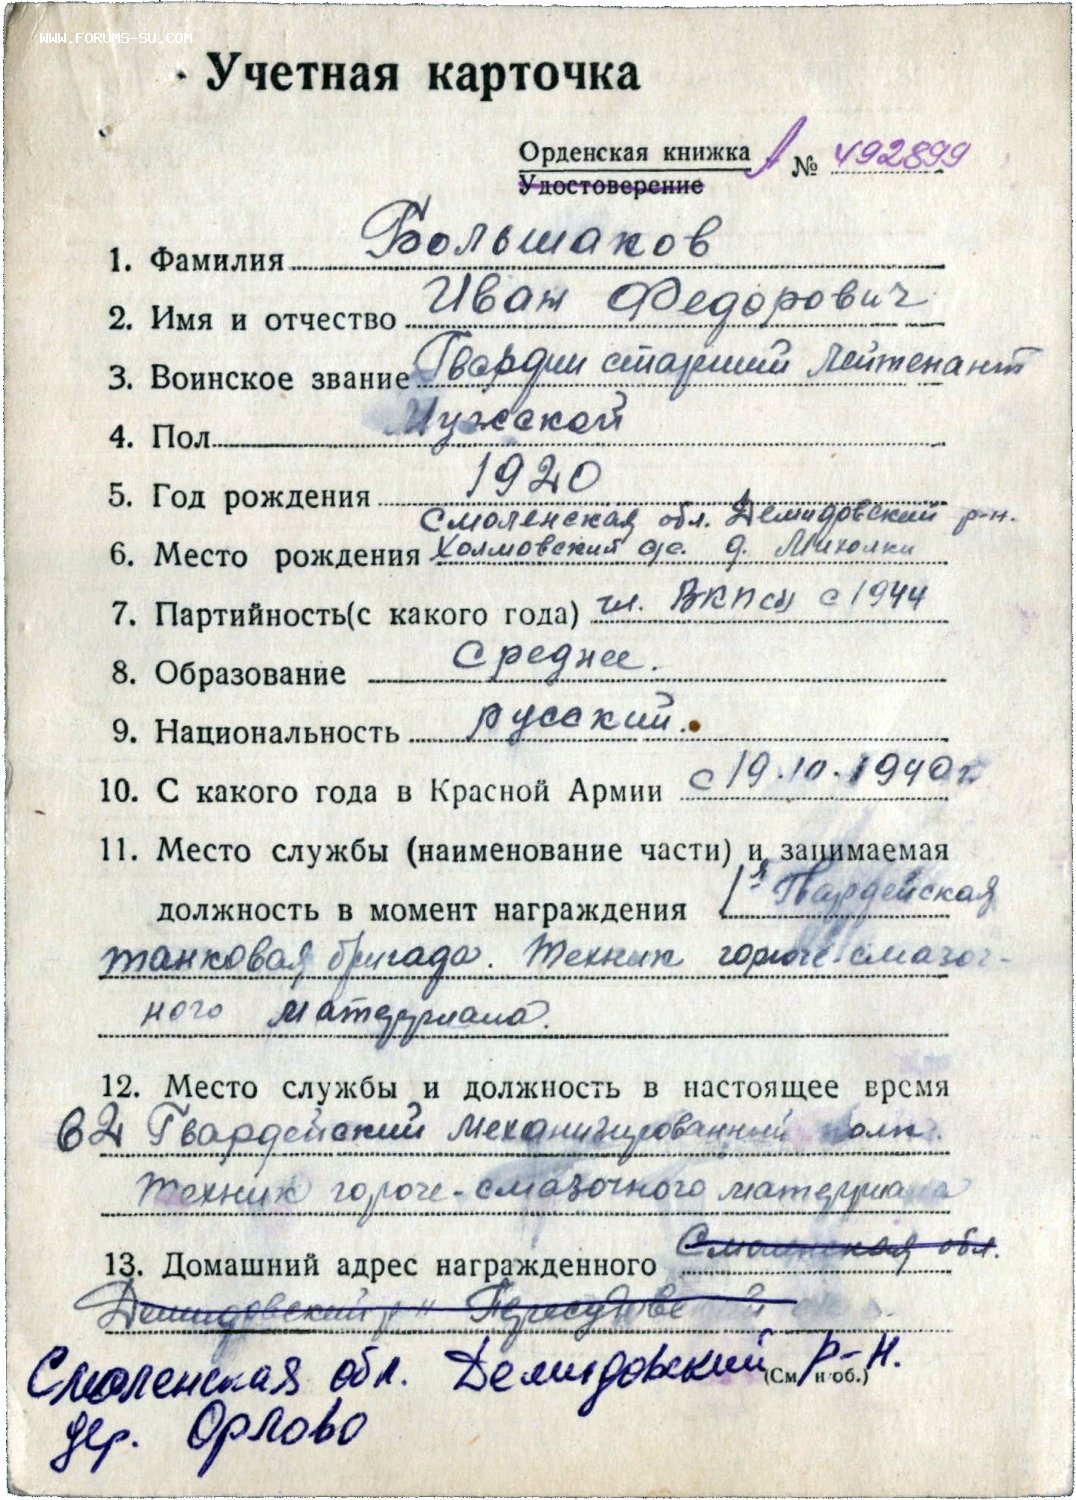 WWW.FORUMS-SU.COM
Учетная карточка
Орденская книжка А № 492899
Удостоверение
1. Фамилия Большаков
2. Имя и отчество Иван Федорович
3. Воинское звание Гвардии старший лейтенант
4. Пол Мужской
5. Год рождения 1920
Смоленская обл. Демидовский р-н.
6. Место рождения Холмовский с/с. д. Михалки
7. Партийность (с какого года) чл. ВКП(б) с 1944
8. Образование Среднее.
9. Национальность русский.
10. С какого года в Красной Армии с 19.10.1940 г.
11. Место службы (наименование части) и занимаемая
должность в момент награждения 1я Гвардейская
танковая бригада. Техник горюче-смазоч-
ного матерриала.
12. Место службы и должность в настоящее время
62 Гвардейский механизированный полк.
Техник горюче-смазочного матерриала
13. Домашний адрес награжденного Смоленская обл.
Демидовский р-н
Смоленская обл. Демидовский р-н.
(См. н об.)
дер. Орлово